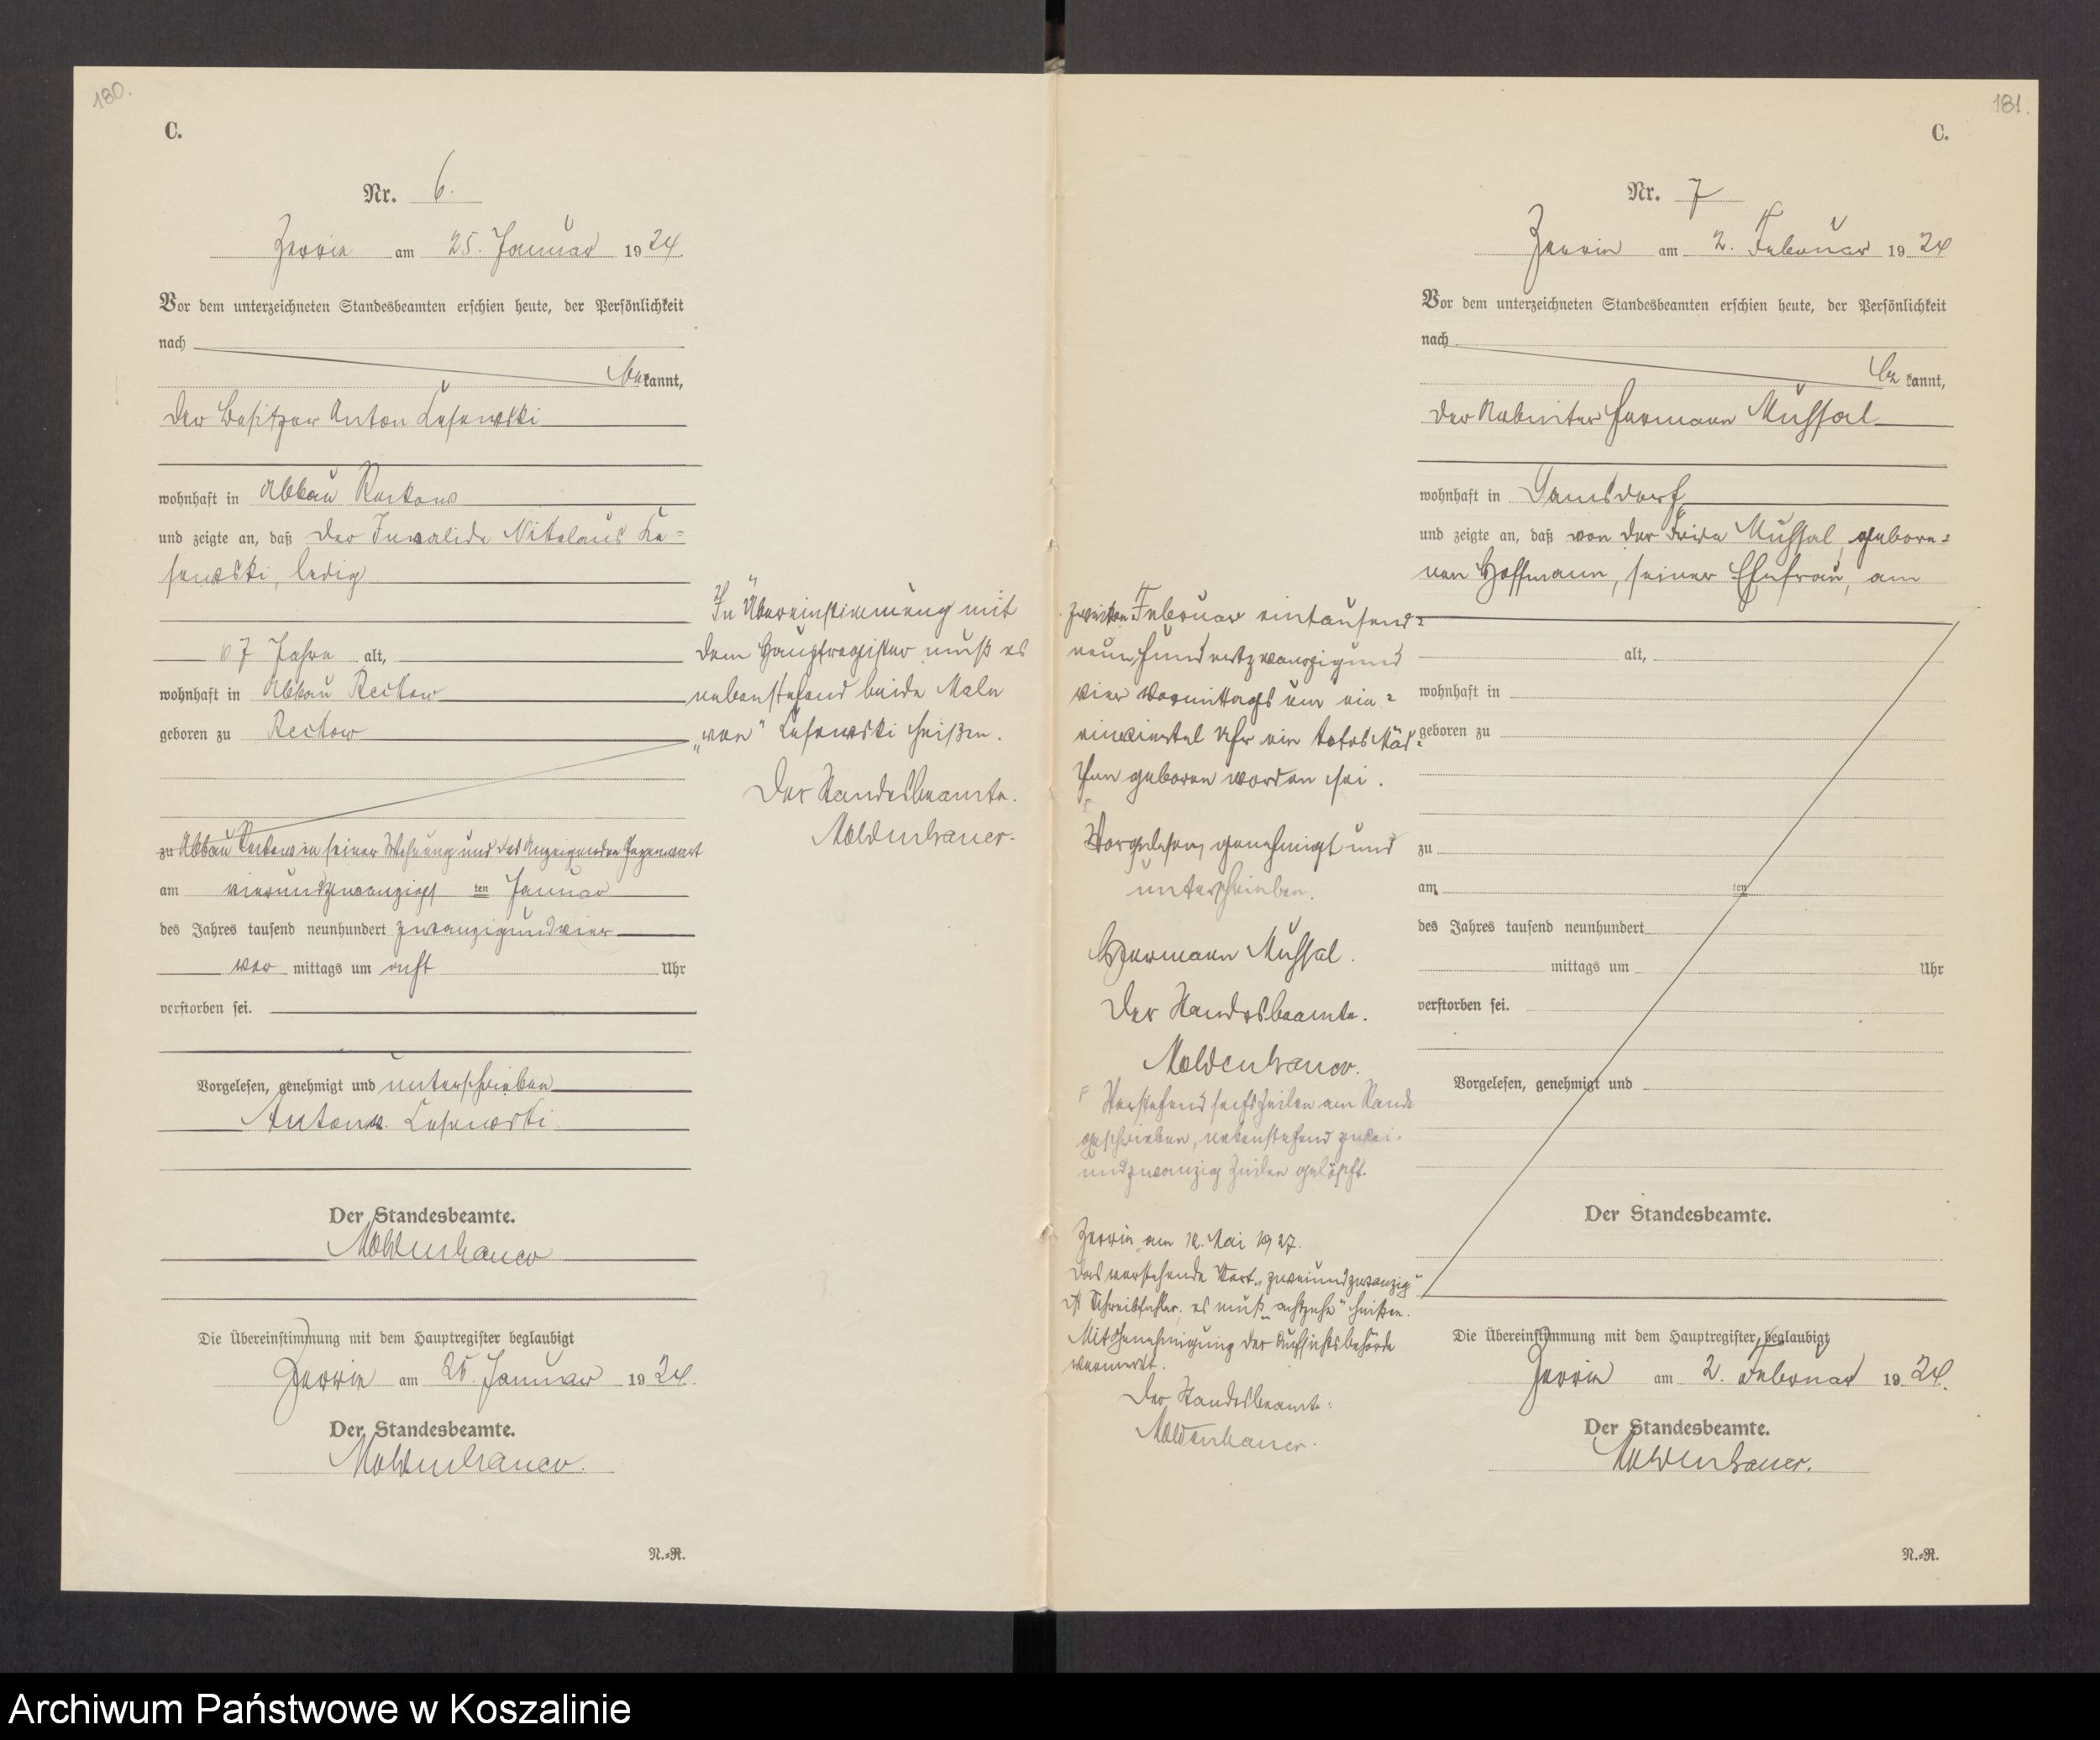 180.
C.
Nr. 6.
Zerrin am 25. Januar 1924.
Vor dem unterzeichneten Standesbeamten erschien heute, der Persönlichkeit
nach
bekannt,
der Besitzer Anton Lesewski
wohnhaft in Abbau Reckow
und zeigte an, daß der Invalide Nikolaus Le=
sewski, ledig
67 Jahre alt,
wohnhaft in Abbau Reckow
geboren zu Reckow
zu Abbau Reckow in seiner Wohnung und des Anzeigenden Gegenwart
am vierundzwanzigsten Januar
des Jahres tausend neunhundert zwanzigundvier
vor mittags um acht Uhr
verstorben sei.
Vorgelesen, genehmigt und unterschrieben
Anton Lesewski
Der Standesbeamte.
Moldenhauer
Die Übereinstimmung mit dem Hauptregister beglaubigt
Zerrin am 25. Januar 1924.
Der Standesbeamte.
Moldenhauer.
N.=R.
In Übereinstimmung mit
dem Hauptregister muß es
nebenstehend beide Male
"von" Lesewski heißen.
Der Standesbeamte.
Moldenhauer.
181.
C.
Nr. 7
Zerrin am 2. Februar 1924
Vor dem unterzeichneten Standesbeamten erschien heute, der Persönlichkeit
nach
be kannt,
der Arbeiter Hermann Mußsal
wohnhaft in Damsdorf
und zeigte an, daß von der Frida Mußsal, gebore=
nen Hoffmann, seiner Ehefrau, am
zweiten Februar eintausend=
neunhundertzwanzigund
vier vormittags um ein=
einviertel Uhr ein totes Mäd=
chen geboren worden sei.
Vorgelesen, genehmigt und
unterschrieben.
Hermann Mußsal.
Der Standesbeamte.
Moldenhauer.
Vorstehend sechs Zeilen am Rande
geschrieben, nebenstehend zwei=
undzwanzig Zeilen gelöscht.
Zerrin, am 12. Mai 1927.
Das vorstehende Wort "zweiundzwanzig"
ist Schreibfehler, es muß "achtzehn" heißen.
Mit Genehmigung der Aufsichtsbehörde
vermerkt.
Der Standesbeamte:
Moldenhauer.
alt,
wohnhaft in
geboren zu
zu
am ten
des Jahres tausend neunhundert
mittags um Uhr
verstorben sei.
Vorgelesen, genehmigt und
Der Standesbeamte.
Die Übereinstimmung mit dem Hauptregister beglaubigt
Zerrin am 2. Februar 1924.
Der Standesbeamte.
Moldenhauer.
N.=R.
Archiwum Państwowe w Koszalinie